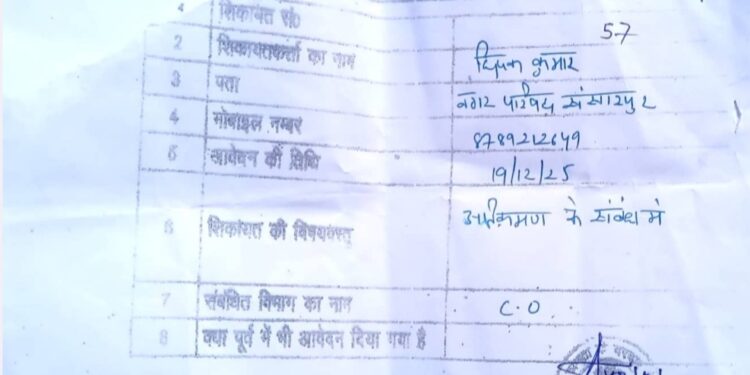 1 शिकायत सं० 57
2 शिकायतकर्ता का नाम दिपक कुमार
3 पता नगर परिषद
4 मोबाइल नम्बर 8789212649
5 आवेदन की तिथि 19/12/25
6 शिकायत की विषयवस्तु अतिक्रमण के संबंध मे
7 संबंधित विभाग का नाम C.O
8 क्या पूर्व में भी आवेदन दिया गया है